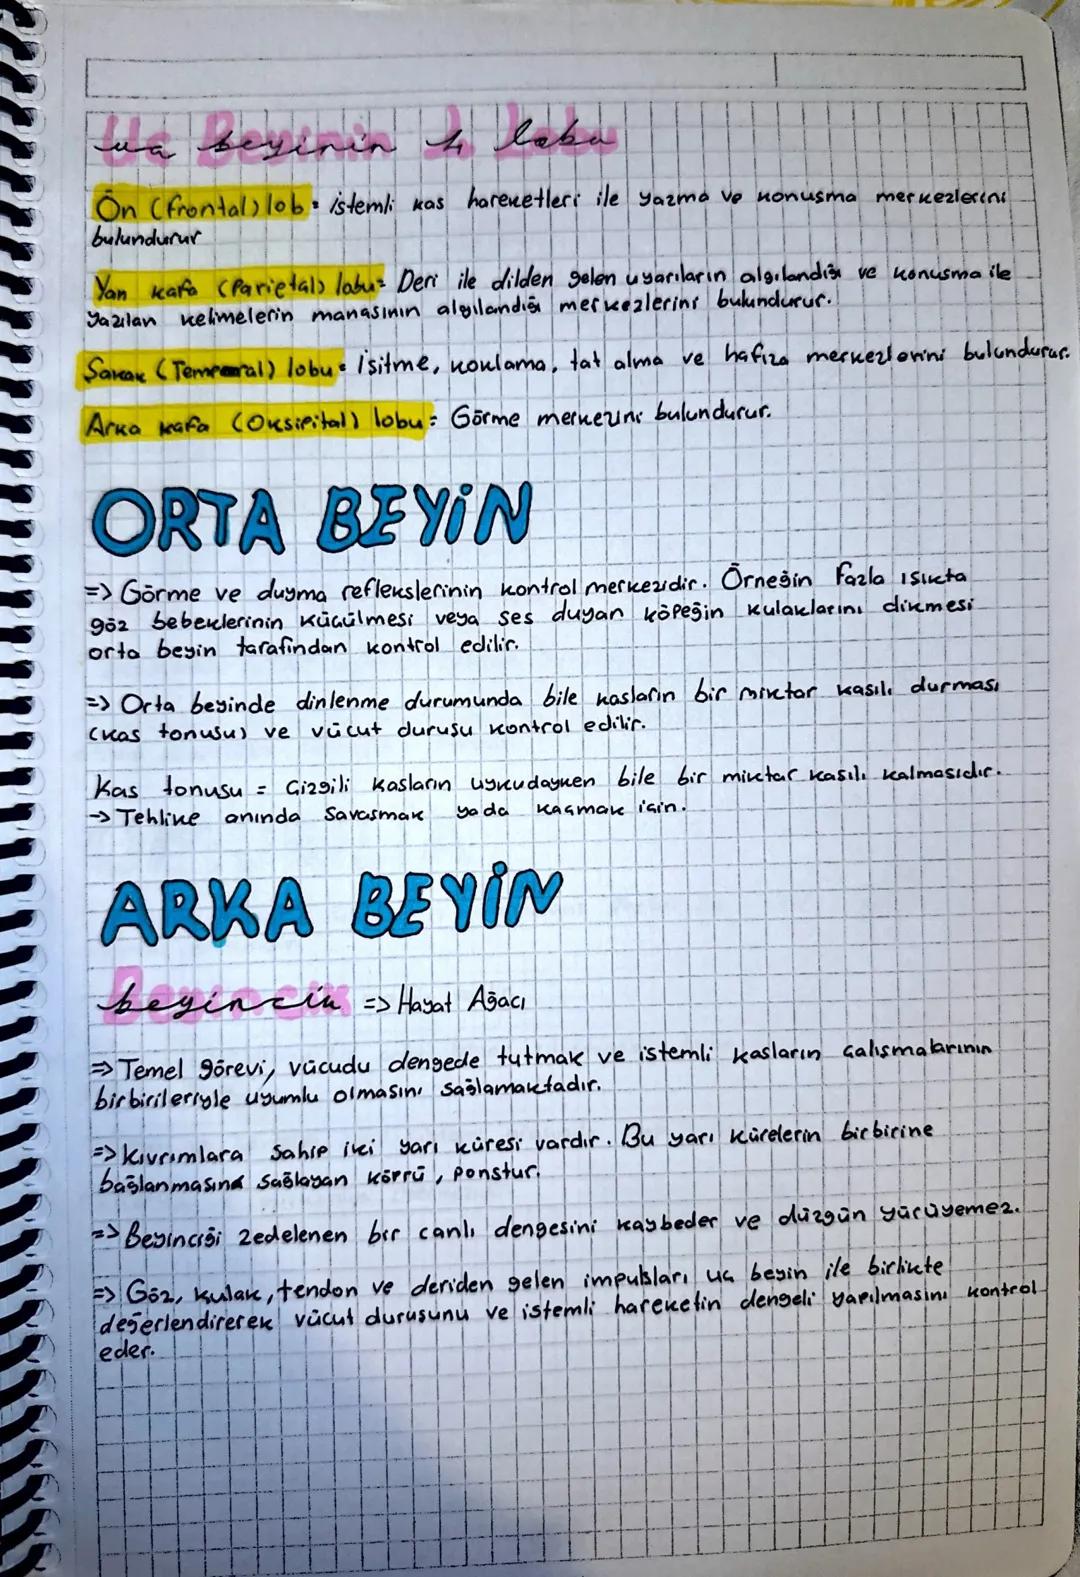 Uç Beyinin 4 Lobu
Ön (frontal) lob = istemli kas hareketleri ile yazma ve konuşma merkezlerini
bulundurur
Yan kafa (Parietal) lobu = Deri ile dilden gelen uyarıların algılandığı ve konuşma ile
yazılan kelimelerin manasının algılandığı merkezlerini bulundurur.
Şakak (Temporal) lobu = İşitme, koklama, tat alma ve hafıza merkezlerini bulundurur.
Arka kafa (Oksipital) lobu = Görme merkezini bulundurur.
ORTA BEYİN
=> Görme ve duyma reflekslerinin kontrol merkezidir. Örneğin fazla ışıkta
göz bebeklerinin küçülmesi veya ses duyan köpeğin kulaklarını dikmesi
orta beyin tarafından kontrol edilir.
=> Orta beyinde dinlenme durumunda bile kasların bir miktar kasılı durması
(kas tonusu) ve vücut duruşu kontrol edilir.
Kas tonusu = Çizgili kasların uykudayken bile bir miktar kasılı kalmasıdır.
-> Tehlike anında Savaşmak yada kaçmak için.
ARKA BEYİN
beyincik => Hayat Ağacı
=> Temel görevi, vücudu dengede tutmak ve istemli kasların çalışmalarının
birbirileriyle uyumlu olmasını sağlamaktadır.
=> Kıvrımlara sahip iki yarı küresi vardır. Bu yarı kürelerin birbirine
bağlanmasına sağlayan köprü, ponstur.
=> Beyinciği zedelenen bir canlı dengesini kaybeder ve düzgün yürüyemez.
=> Göz, kulak, tendon ve deriden gelen impulsları uç beyin ile birlikte
değerlendirerek vücut duruşunu ve istemli hareketin dengeli yapılmasını kontrol
eder.